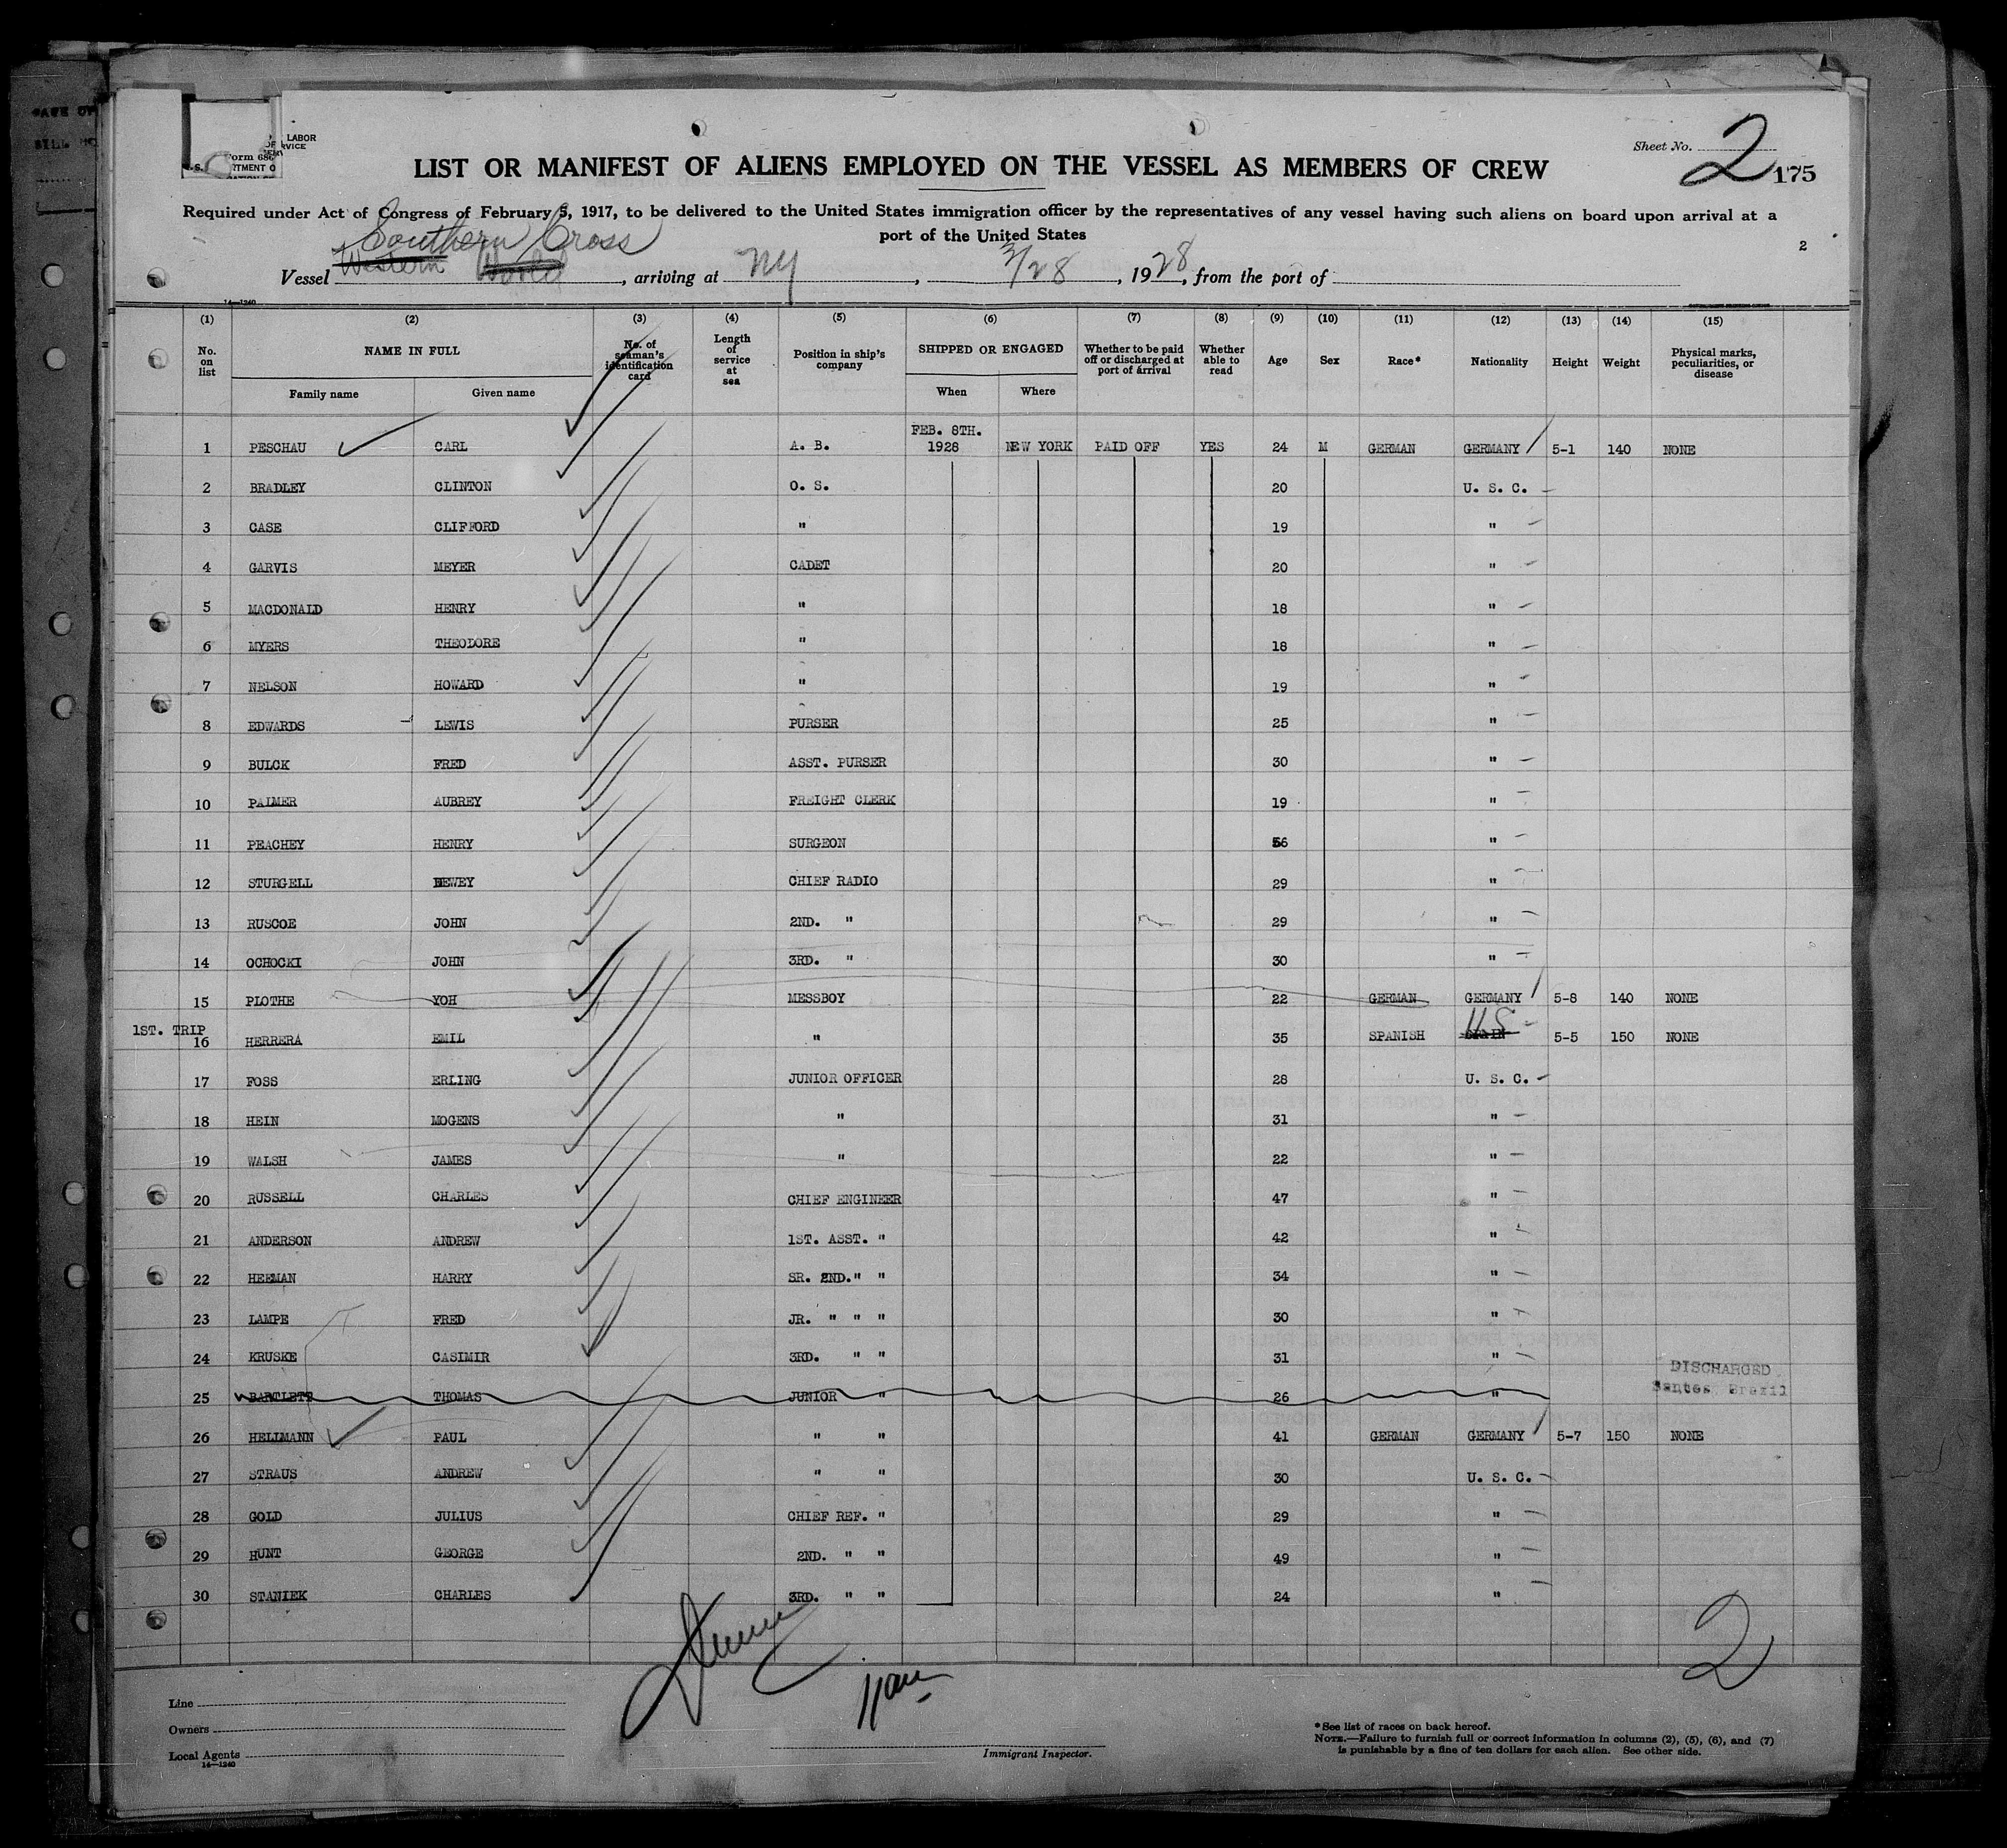 LABOR
Form 686
Sheet No. 2
175
LIST OR MANIFEST OF ALIENS EMPLOYED ON THE VESSEL AS MEMBERS OF CREW
Required under Act of Congress of February 5, 1917, to be delivered to the United States immigration officer by the representatives of any vessel having such aliens on board upon arrival at a
port of the United States
2
Southern Cross
Vessel Western World, arriving at NY, 3/28, 1928, from the port of
14—1240
(1) (2) (3) (4) (5) (6) (7) (8) (9) (10) (11) (12) (13) (14) (15)
No. on list NAME IN FULL No. of seaman's identification card Length of service at sea Position in ship's company SHIPPED OR ENGAGED Whether to be paid off or discharged at port of arrival Whether able to read Age Sex Race* Nationality Height Weight Physical marks, peculiarities, or disease
Family name Given name When Where
1 PESCHAU CARL A. B. FEB. 8TH. 1928 NEW YORK PAID OFF YES 24 M GERMAN GERMANY 5-1 140 NONE
2 BRADLEY CLINTON O. S. 20 U. S. C.
3 CASE CLIFFORD " 19 "
4 GARVIS MEYER CADET 20 "
5 MACDONALD HENRY " 18 "
6 MYERS THEODORE " 18 "
7 NELSON HOWARD " 19 "
8 EDWARDS LEWIS PURSER 25 "
9 BULCK FRED ASST. PURSER 30 "
10 PALMER AUBREY FREIGHT CLERK 19 "
11 PEACHEY HENRY SURGEON 56 "
12 STURGELL DEWEY CHIEF RADIO 29 "
13 RUSCOE JOHN 2ND. " 29 "
14 OCHOCKI JOHN 3RD. " 30 "
15 PLOTHE YOH MESSBOY 22 GERMAN GERMANY 5-8 140 NONE
1ST. TRIP
16 HERRERA EMIL " 35 SPANISH SPAIN US 5-5 150 NONE
17 FOSS ERLING JUNIOR OFFICER 28 U. S. C.
18 HEIN MOGENS " 31 "
19 WALSH JAMES " 22 "
20 RUSSELL CHARLES CHIEF ENGINEER 47 "
21 ANDERSON ANDREW 1ST. ASST. " 42 "
22 HEEMAN HARRY SR. 2ND. " " 34 "
23 LAMPE FRED JR. " " " 30 "
24 KRUSKE CASIMIR 3RD. " " 31 "
DISCHARGED
Santos, Brazil
25 BARTLETT THOMAS JUNIOR " 26 "
26 HELLMANN PAUL " " 41 GERMAN GERMANY 5-7 150 NONE
27 STRAUS ANDREW " " 30 U. S. C.
28 GOLD JULIUS CHIEF REF. " 29 "
29 HUNT GEORGE 2ND. " " 49 "
30 STANIEK CHARLES 3RD. " " 24 "
2
Line
Owners
Local Agents
14—1240
Immigrant Inspector.
*See list of races on back hereof.
NOTE.—Failure to furnish full or correct information in columns (2), (5), (6), and (7)
is punishable by a fine of ten dollars for each alien. See other side.